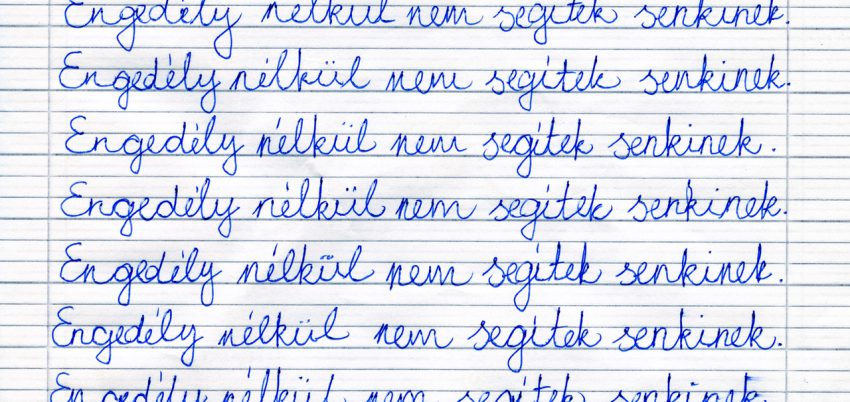 Engedély nélkül nem segítek senkinek.
Engedély nélkül nem segítek senkinek.
Engedély nélkül nem segítek senkinek.
Engedély nélkül nem segítek senkinek.
Engedély nélkül nem segítek senkinek.
Engedély nélkül nem segítek senkinek.
Engedély nélkül nem segítek senkinek.